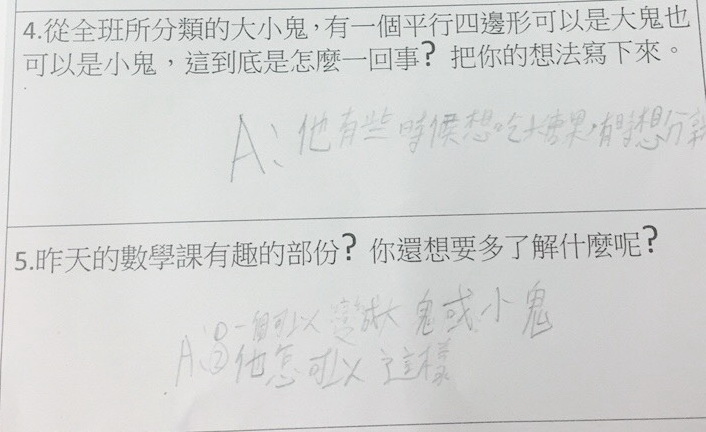 4.從全班所分類的大小鬼，有一個平行四邊形可以是大鬼也
可以是小鬼，這到底是怎麼一回事？把你的想法寫下來。
A：他有些時候想吃糖果，有時想分
5.昨天的數學課有趣的部份？你還想要多了解什麼呢？
A：①一個可以變成大鬼或小鬼
②他怎可以這樣